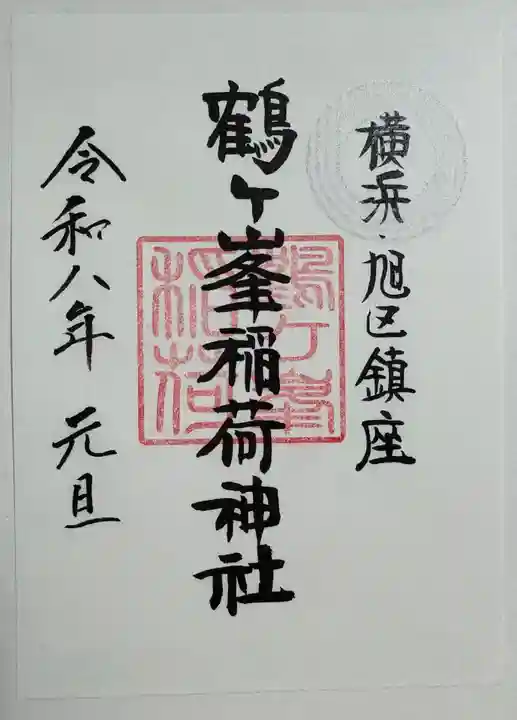 横浜・旭区鎮座
鶴ヶ峯稲荷神社
令和八年 元旦
鶴ヶ峯
稲荷